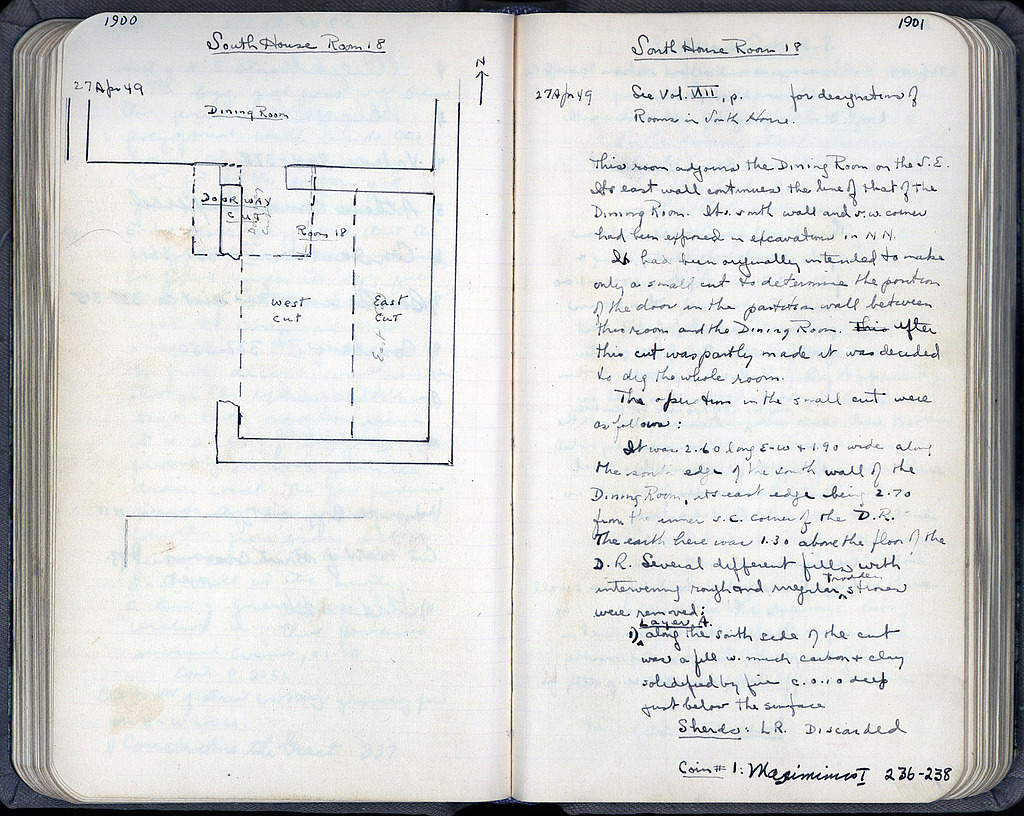 1900
South House Room 18
27 Apr 49
N
Dining Room
DOORWAY
CUT
Room 18
West
Cut
East
Cut
East
1901
South House Room 18
27 Apr 49
See Vol. VIII, p. for designation of
Rooms in South House.
This room adjoins the Dining Room on the S.E.
Its east wall continues the line of that of the
Dining Room. Its south wall and s.w. corner
had been exposed in excavation in NN.
It had been originally intended to make
only a small cut to determine the position
of the door in the partition wall between
this room and the Dining Room. This After
this cut was partly made it was decided
to dig the whole room.
The operations in the small cut were
as follows:
It was 2.60 long E-W + 1.90 wide along
the south edge of the south wall of the
Dining Room, its east edge being 2.70
from the inner s.e. corner of the D.R.
The earth here was 1.30 above the floor of the
D.R. Several different fills with
intervening rough and irregular trodden
were removed:
Layer A.
1) along the south side of the cut
was a fill w. much carbon + clay
solidified by fire c. 0.10 deep
just below the surface
Sherds: LR. Discarded
Coin # 1: Maximinus I 236-238